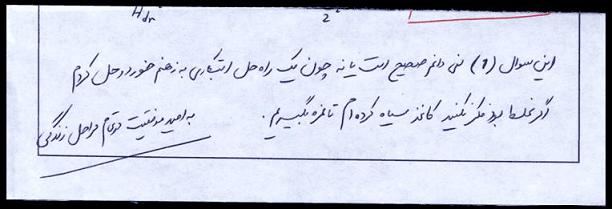 Hdr
2
این سوال (1) نمی دانم صحیح است یا نه چون یک راه حل ابتکاری به ذهنم خورد و حل کردم
اگر غلط بود فکر نکنید کاغذ سیاه کرده ام تا نمره بگیرم.
به امید موفقیت در تمام مراحل زندگی